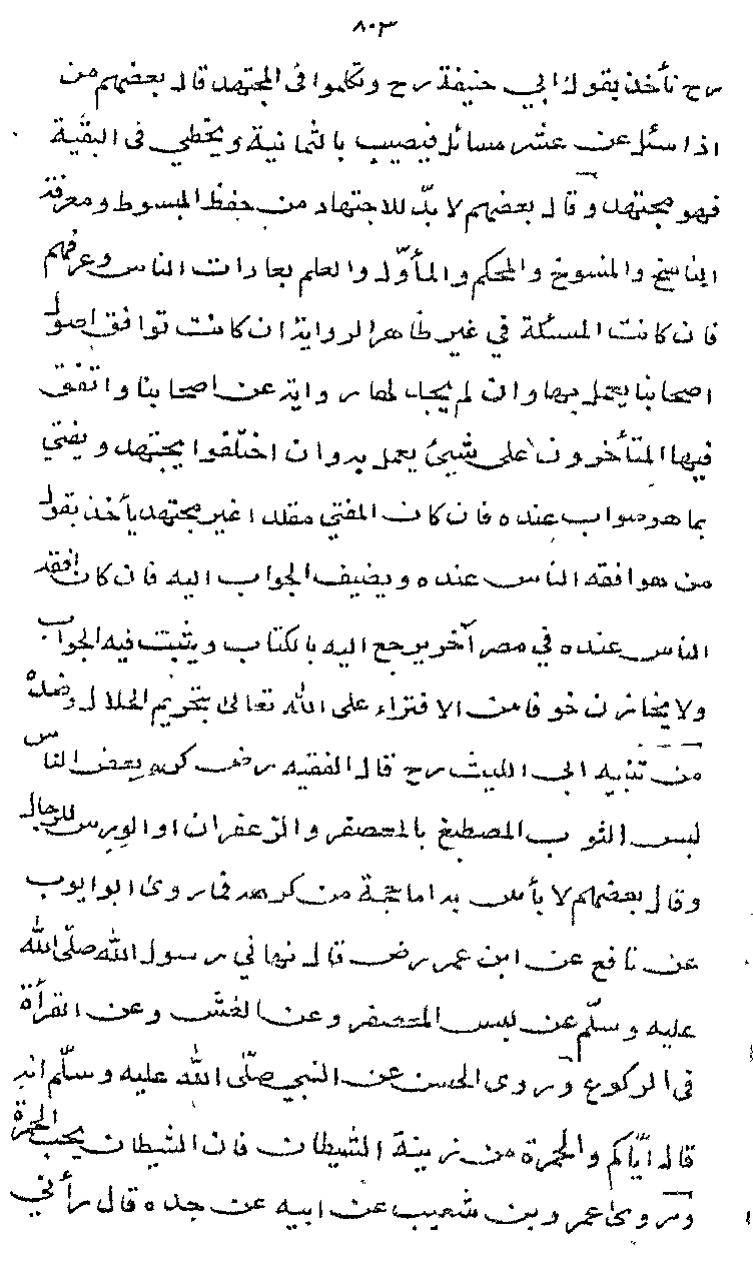 ٨٠٣
رح نأخذ بقول ابي حنيفة رح وتكلموا فى المجتهد قال بعضهم من
اذا سئل عن عشر مسائل فيصيب بالثمانية ويخطي فى البقية
فهو مجتهد وقال بعضهم لا بدّ للاجتهاد من حفظ المبسوط ومعرفة
الناسخ والمنسوخ والمحكم والمأوّل والعلم بعادات الناس وعرفهم
فان كانت المسئلة في غير ظاهر الرواية ان كانت توافق اصول
اصحابنا يعمل بها وان لم يجد لها رواية عن اصحابنا واتفق
فيها المتأخرون على شيئ يعمل به وان اختلفوا يجتهد ويفتي
بما هو صواب عنده فان كان المفتي مقلدا غير مجتهد يأخذ بقول
من هو افقه الناس عنده ويضيف الجواب اليه فان كان افقه
الناس عنده في مصر آخر يرجع اليه بالكتاب ويثبت فيه الجواب
ولا يجازن خوفا من الافتراء على الله تعالى بتحريم الحلال وضده
من تنبيه ابى الليث رح قال الفقيه رضى كره بعض الناس
لبس الثوب المصطبغ بالمعصفر والزعفران او الورس للرجال
وقال بعضهم لا بأس به اما حجة من كرهه فما روى ابو ايوب
عن نافع عن ابن عمر رضى قال نهاني رسول الله صلّى الله
عليه وسلّم عن لبس المعصفر وعن الغسّ وعن القرأة
فى الركوع وروى الحسن عن النبي صلّى الله عليه وسلّم انه
قال ايّاكم والحمرة من زينة الشيطان فان الشيطان يحب الحمرة
وروى عمرو بن شعيب عن ابيه عن جده قال رأني